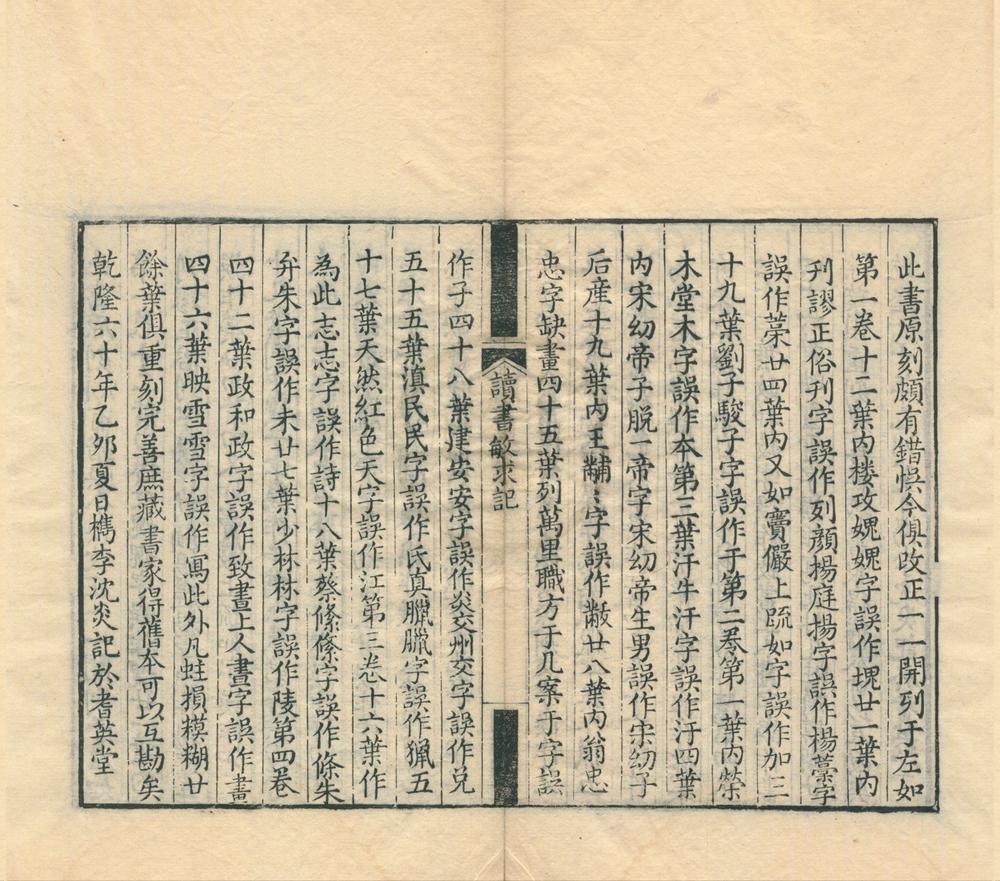 此書原刻頗有錯悮今俱改正一一開列于左如
第一卷十二葉内楼攻媿媿字誤作塊廿一葉内
刊謬正俗刊字誤作列顔揚庭揚字誤作楊藁字
誤作荣廿四葉内又如竇儼上䟽如字誤作加三
十九葉劉子駿子字誤作于第二卷第一葉内榮
木堂木字誤作本第三葉汗牛汗字誤作汙四葉
内宋幼帝子脱一帝字宋幼帝生男誤作宋幼子
后産十九葉内王黼〻字誤作黻廿八葉内翁忠
忠字缺畫四十五葉列萬里職方于几案于字誤
讀書敏求記
作子四十八葉建安安字誤作炎交州交字誤作兌
五十五葉滇民民字誤作氏真臘臘字誤作猟五
十七葉天然紅色天字誤作江第三卷十六葉作
為此志志字誤作詩十八葉蔡絛絛字誤作條朱
弁朱字誤作未廿七葉少林林字誤作陵第四卷
四十二葉政和政字誤作致畫上人畫字誤作畵
四十六葉映雪雪字誤作寫此外凡蛀損糢糊廿
餘葉俱重刻完善庶藏書家得舊本可以互勘矣
乾隆六十年乙夘夏日檇李沈炎記於耆英堂